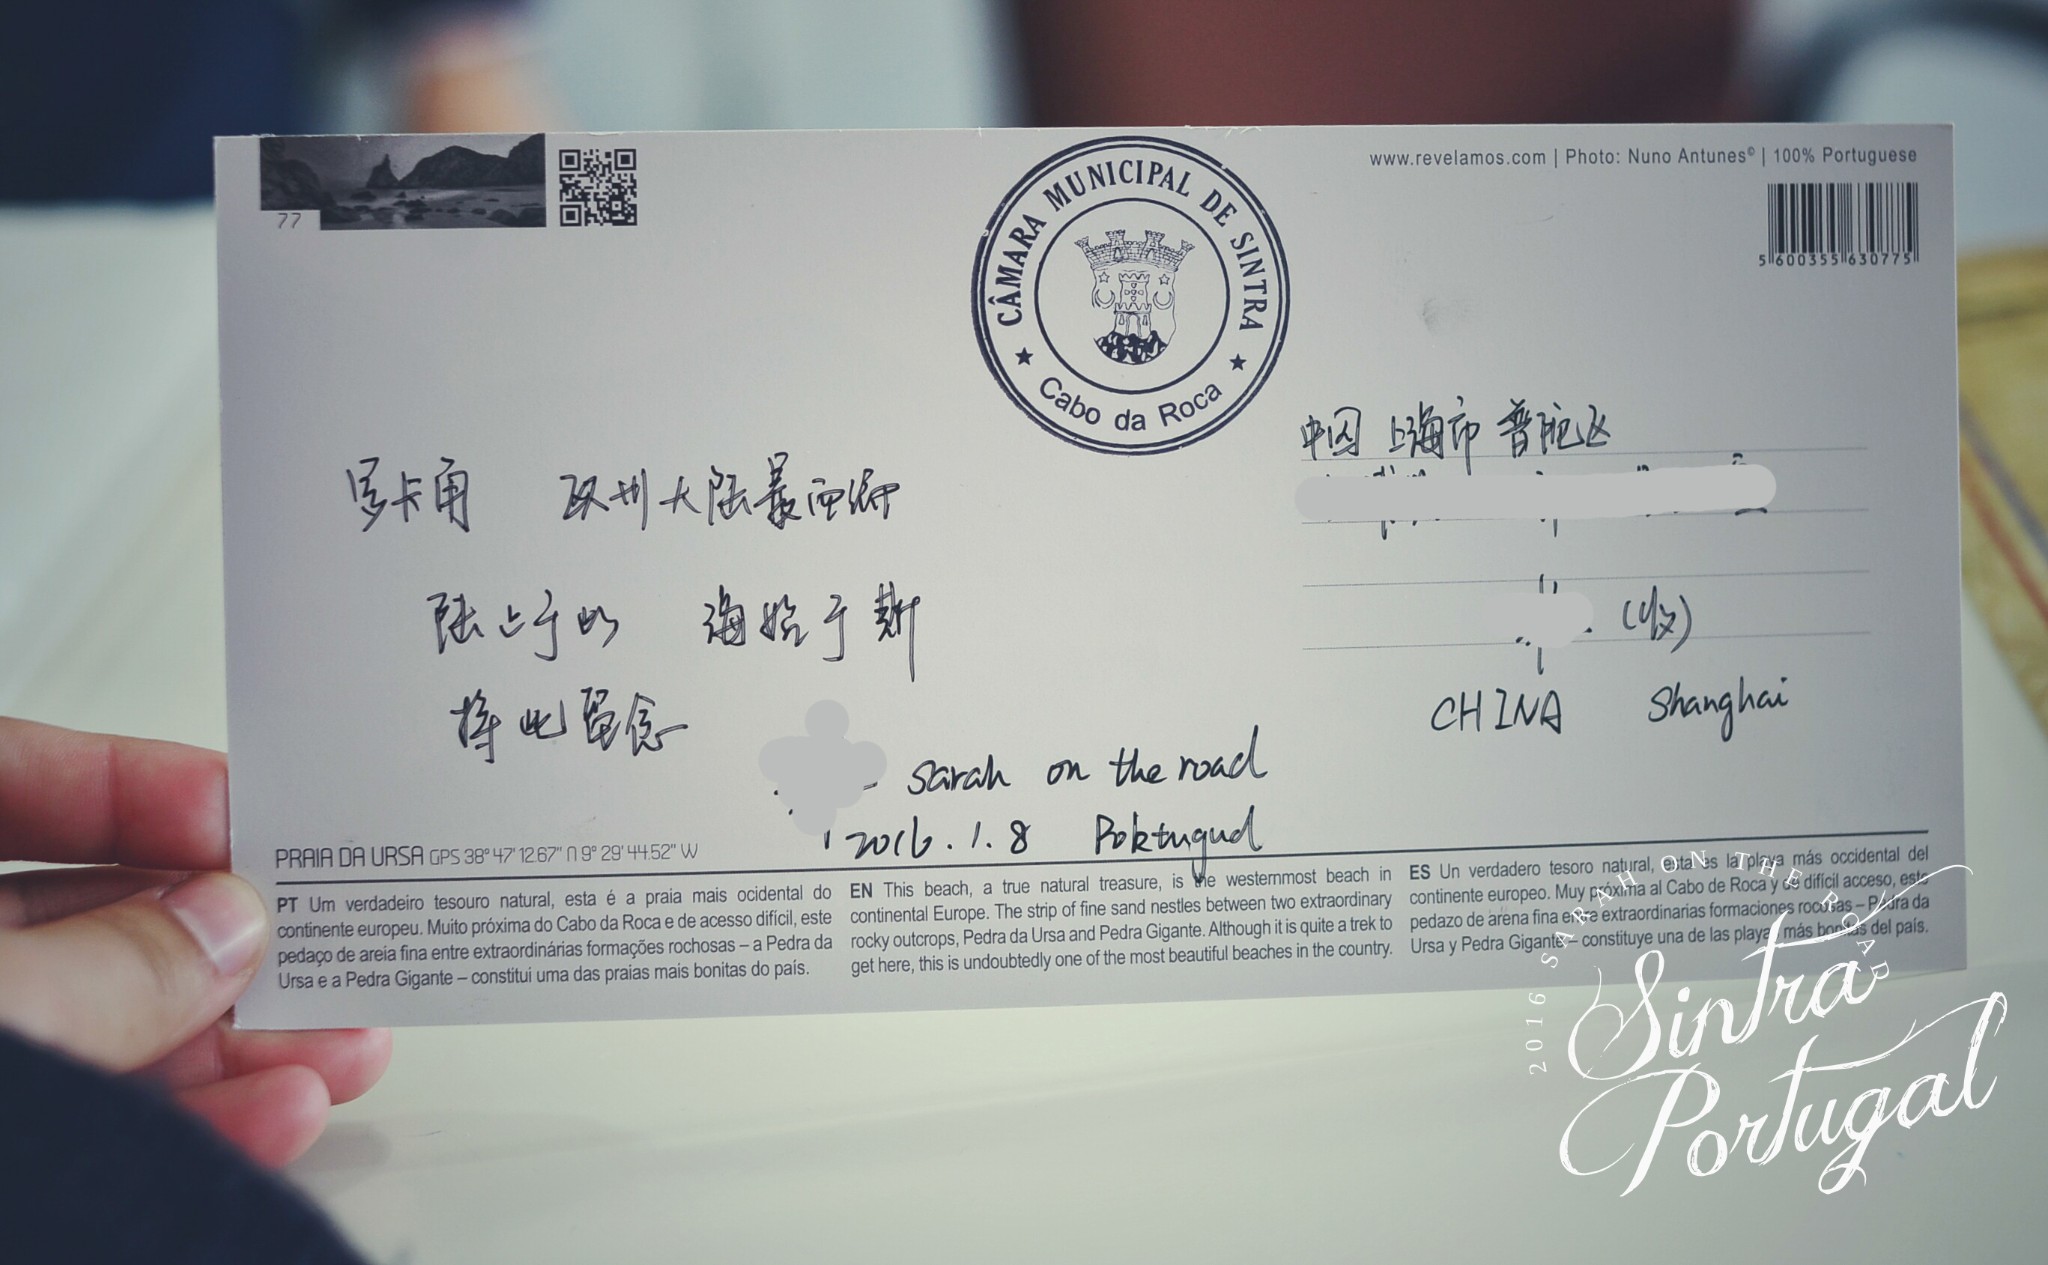 77
CÂMARA MUNICIPAL DE SINTRA
Cabo da Roca
www.revelamos.com | Photo: Nuno Antunes© | 100% Portuguese
5 600355 630775
罗卡角 欧州大陆最西端
陆止于此 海始于斯
特此留念
Sarah on the road
2016.1.8 Poktugud
中囚 上海市 普陀区
(收)
CHINA Shanghai
PRAIA DA URSA GPS 38º 47' 12.67" N 9º 29' 44.52" W
PT Um verdadeiro tesouro natural, esta é a praia mais ocidental do
continente europeu. Muito próxima do Cabo da Roca e de acesso difícil, este
pedaço de areia fina entre extraordinárias formações rochosas – a Pedra da
Ursa e a Pedra Gigante – constitui uma das praias mais bonitas do país.
EN This beach, a true natural treasure, is the westernmost beach in
continental Europe. The strip of fine sand nestles between two extraordinary
rocky outcrops, Pedra da Ursa and Pedra Gigante. Although it is quite a trek to
get here, this is undoubtedly one of the most beautiful beaches in the country.
ES Un verdadero tesoro natural, esta es la playa más occidental del
continente europeo. Muy próxima al Cabo de Roca y de difícil acceso, este
pedazo de arena fina entre extraordinarias formaciones rocosas – Pedra da
Ursa y Pedra Gigante – constituye una de las playas más bonitas del país.
2016 SARAH ON THE ROAD
Sintra
Portugal